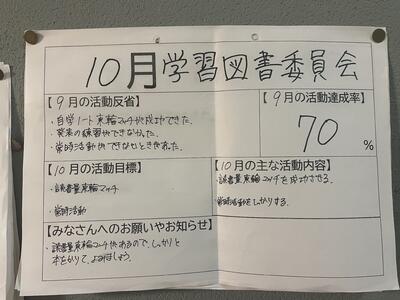 10月学習図書委員会
【9月の活動反省】
・自学ノート東輪マッチが成功できた。
・発表の練習ができなかった。
・常時活動ができないときがあった。
【9月の活動達成率】
70%
【10月の活動目標】
・読書量東輪マッチ
・常時活動
【10月の主な活動内容】
・読書量東輪マッチを成功させる。
・常時活動をしっかりする。
【みなさんへのお願いやお知らせ】
・読書量東輪マッチがあるので、しっかりと
本をかりて、よみましょう。